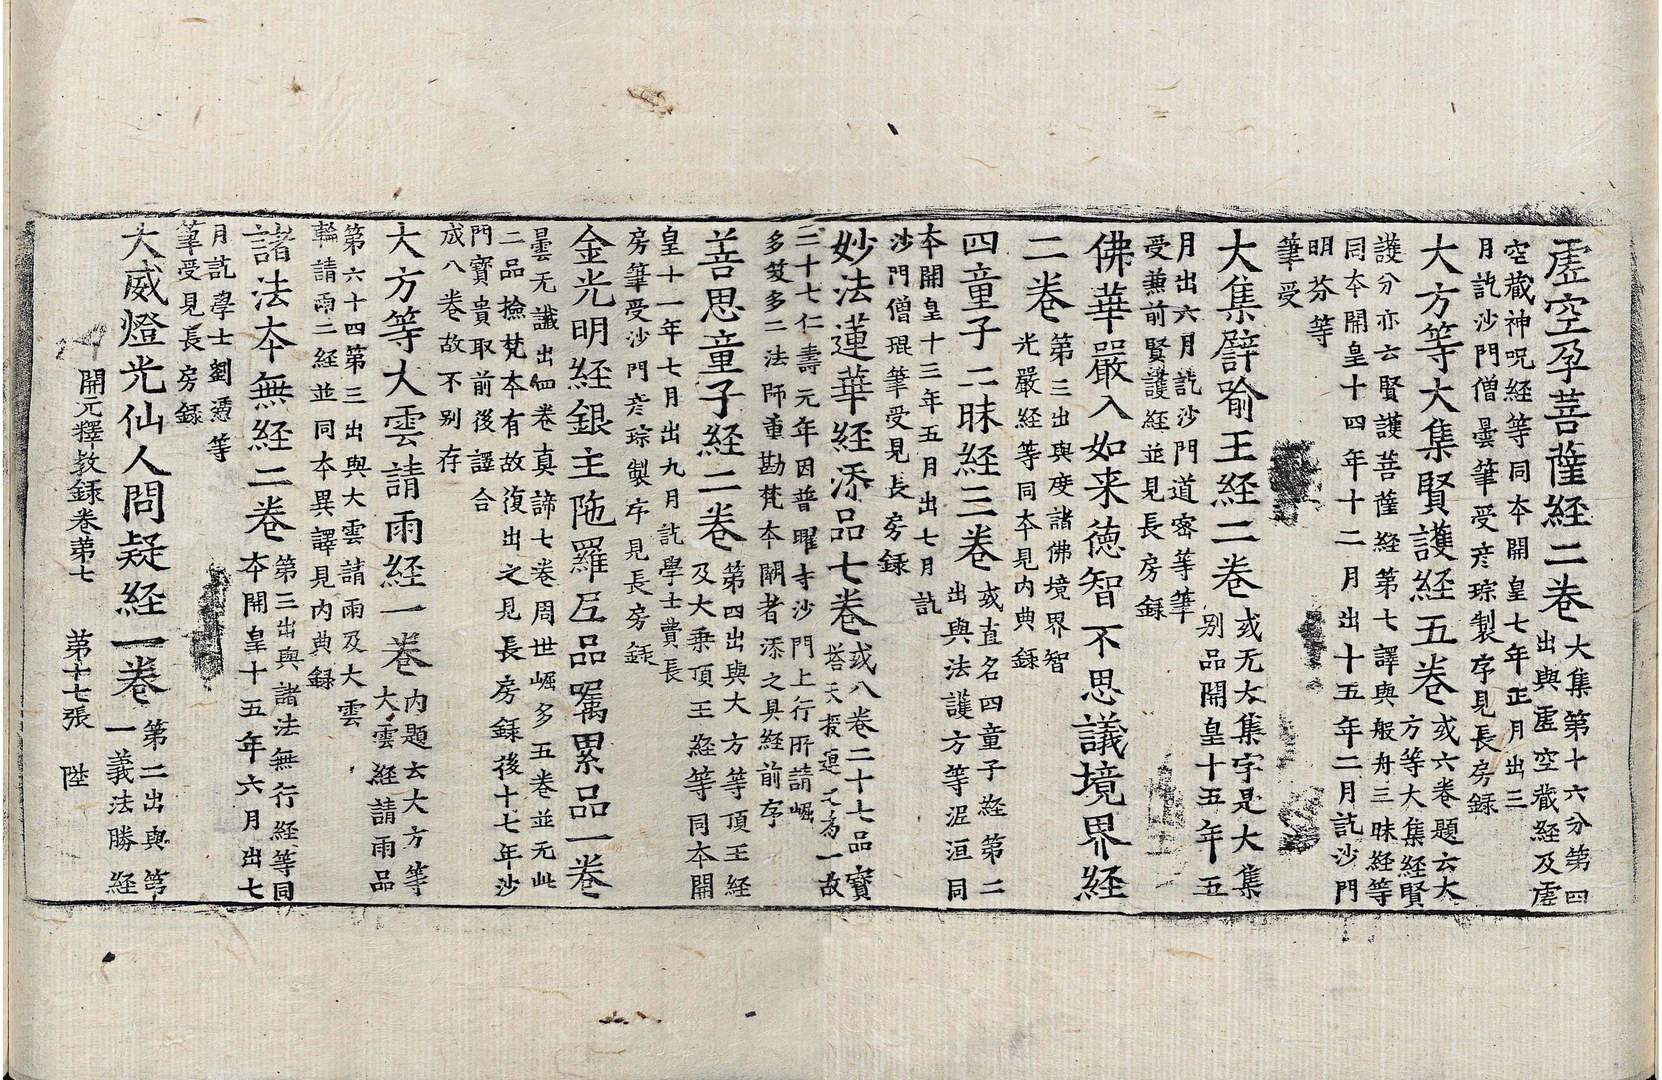 虛空孕菩薩経二卷大集第十六分第四
出與虛空藏経及虛
空藏神呪経等同本開皇七年正月出三
月訖沙門僧曇筆受彦琮製序見長房録
大方等大集賢護経五卷或六卷題云大
方等大集経賢
護分亦云賢護菩薩経第七譯與般舟三昧経等
同本開皇十四年十二月出十五年二月訖沙門
明芬等
筆受
大集譬喻王経二卷或无大集字是大集
别品開皇十五年五
月出六月訖沙門道宻等筆
受𠔥前賢護経並見長房録
佛華嚴入如来德智不思議境界経
二卷第三出與度諸佛境界智
光嚴経等同本見内典録
四童子三昧経三卷或直名四童子経第二
出與法護方等泥洹同
本開皇十三年五月出七月訖
沙門僧琨筆受見長房録
妙法蓮華経添品七卷或八卷二十七品寶
塔天授連之為一故
二十七仁壽元年因普曜寺沙門上行所請崛
多笈多二法師重勘梵本闕者添之具経前序
善思童子経二卷第四出與大方等頂王経
及大乗頂王経等同本開
皇十一年七月出九月訖學士費長
房筆受沙門彦琮製序見長房録
金光明経銀主陁羅尼品嘱累品一卷
曇无讖出四卷真諦七卷周世崛多五卷並无此
二品撿梵本有故復出之見長房録後十七年沙
門寶貴取前後譯合
成八卷故不别存
大方等大雲請雨経一卷内題云大方等
大雲経請雨品
第六十四第三出與大雲請雨及大雲
輪請雨二経並同本異譯見内典録
諸法本無経二卷第三出與諸法無行経等同
本開皇十五年六月出七
月訖學士劉憑等
筆受見長房録
大威燈光仙人問疑経一卷第二出與第
一義法勝経
開元釋教録卷第七 第十七張 陞